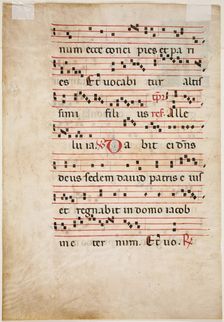 num ecce conci pies et pa ri
es Et vocabi tur altis
simi fili us Alle
lu ia. Da bit ei dns
deus sedem david patris e ius
et regnabit in domo iacob
in e ter num. Et vo.